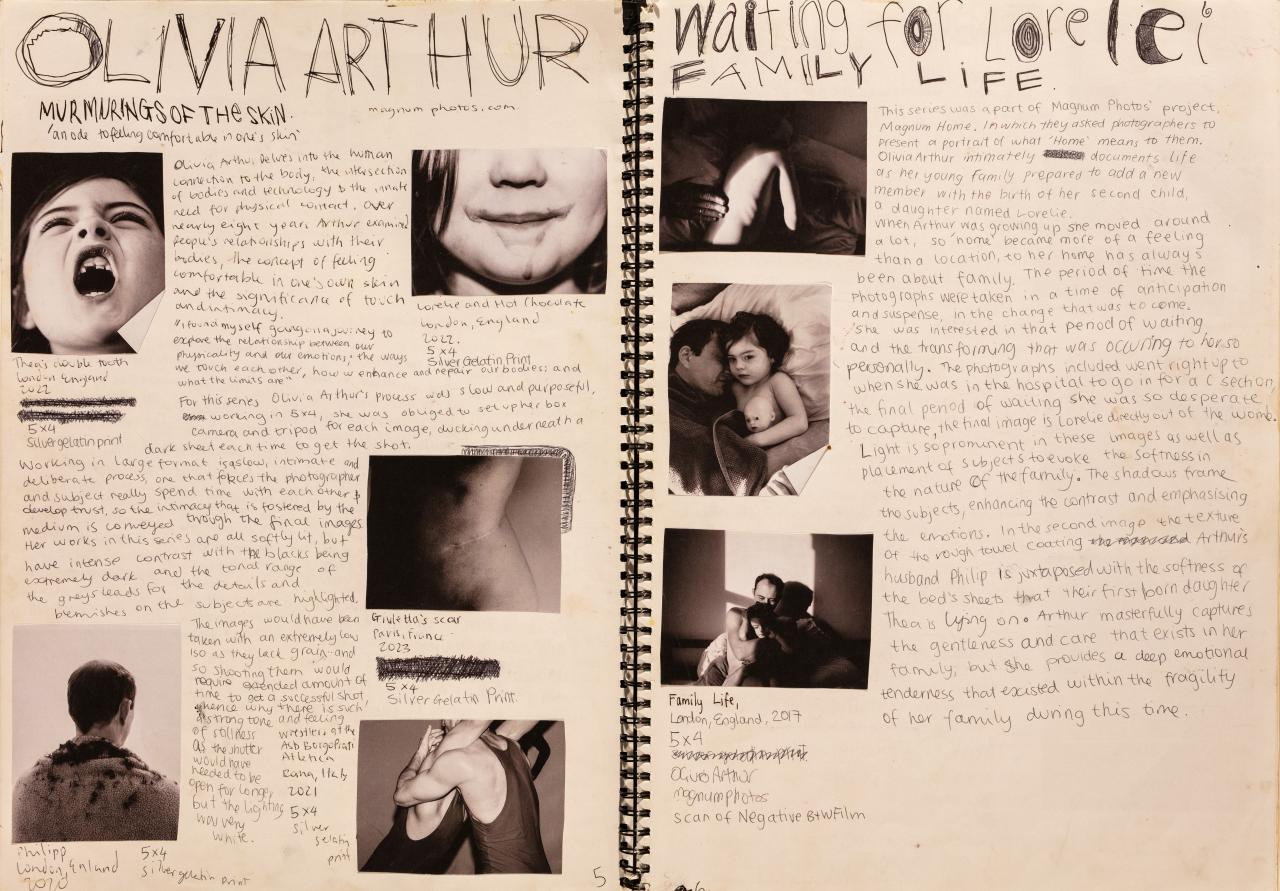 OLIVIA ARTHUR
MURMURINGS OF THE SKIN.
"an ode to feeling comfortable in one's skin"
magnum photos.com.
Olivia Arthur, Delves into the human
connection to the body, the intersection
of bodies and technology & the innate
need for physical contact. Over
nearly eight years Arthur examined
people's relationships with their
bodies, the concept of feeling
comfortable in one's own skin
and the significance of touch
and intimacy.
"I found myself going on a journey to
explore the relationship between our
physicality and our emotions; the ways
we touch each other, how we enhance and repair our bodies; and
what the limits are"
For this series Olivia Arthur's process was slow and purposeful,
working in 5x4, she was obliged to set up her box
camera and tripod for each image, ducking underneath a
dark sheet each time to get the shot.
Thea's double tooth
London England
2022
5x4
Silver gelatin print
Lorelie and Hot Chocolate
London, England
2022.
5x4
Silver Gelatin Print
Working in Large format is a slow, intimate and
deliberate process, one that forces the photographer
and subject really spend time with each other &
develop trust, so the intimacy that is fostered by the
medium is conveyed though the final images
Her works in this series are all softly lit, but
have intense contrast with the blacks being
extremely dark and the tonal range of
the greys leads for the details and
blemishes on the subject are highlighted.
The images would have been
taken with an extremely low
iso as they lack grain and
so shooting them would
require extended amount of
time to get a successful shot,
hence why there is such
a strong tone and feeling
of stillness
as the shutter
would have
needed to be
open for longer,
but the lighting
was very
white.
Giulietta's scar
Paris, France
2023
5x4
Silver Gelatin Print.
wrestlers at the
Asb Borgo Prati
Atletica
Italy
2021
5x4
silver
gelatin
print
Philipp
London, Enland
2020
5x4
silver gelatin print
5
Waiting for Lorelei
FAMILY LIFE.
This series was a part of Magnum Photos' project,
Magnum Home. In which they asked photographers to
present a portrait of what 'Home' means to them.
Olivia Arthur intimately documents life
as her young family prepared to add a new
member with the birth of her second child,
a daughter named Lorelie.
When Arthur was growing up she moved around
a lot, so 'home' became more of a feeling
than a location, to her home has always
been about family. The period of time the
photographs were taken in a time of anticipation
and suspense, in the change that was to come.
She was interested in that period of waiting
and the transforming that was occuring to her so
personally. The photographs included went right up to
when she was in the hospital to go in for a C section,
the final period of waiting she was so desperate
to capture, the final image is Lorelie directly out of the womb.
Light is so prominent in these images as well as
placement of subjects to evoke the softness in
the nature of the family. The shadows frame
the subjects, enhancing the contrast and emphasising
the emotions. In the second image the texture
of the rough towel coating Arthur's
husband Philip is juxtaposed with the softness of
the bed's sheets that their first born daughter
Thea is lying on. Arthur masterfully captures
the gentleness and care that exists in her
family, but she provides a deep emotional
tenderness that existed within the fragility
of her family during this time.
Family Life,
London, England, 2017
5x4
Olivia Arthur
magnumphotos
scan of Negative B+W Film